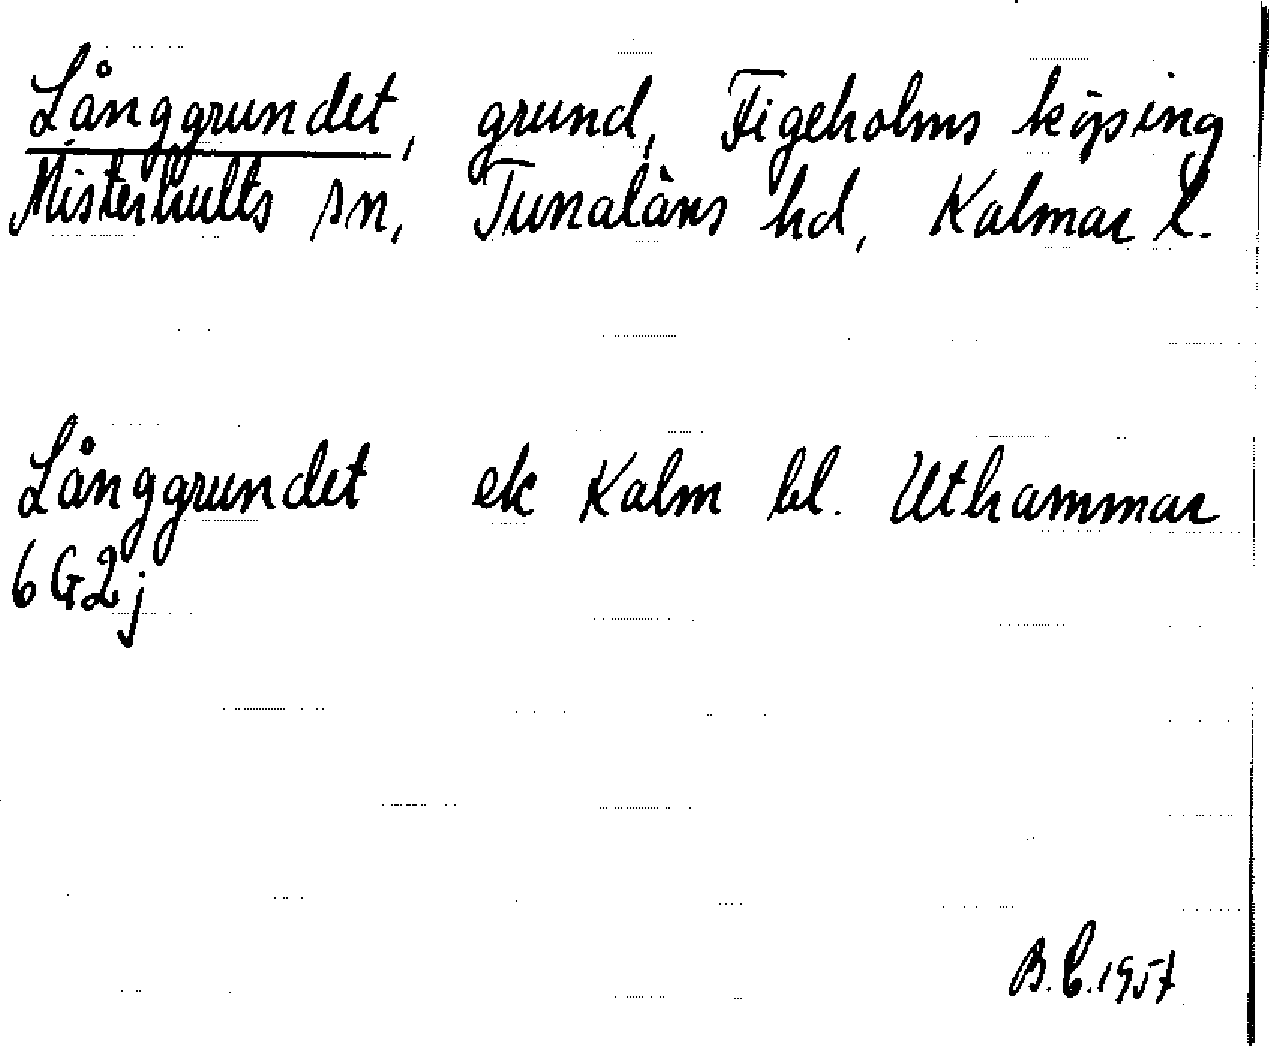 Långgrundet, grund, Figeholms köping
Misterhults sn, Tunaläns hd, Kalmar l.
Långgrundet ek Kalm bl. Uthammar
6 G2j
B.C. 1957